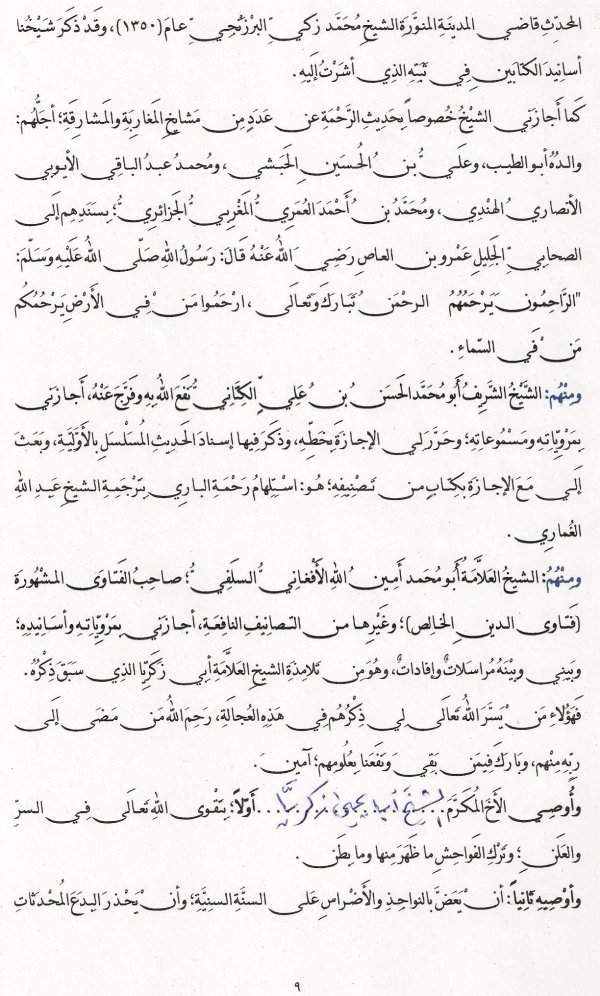 المحدِّثِ قاضي المدينةِ المنوَّرَةِ الشيخِ مُحَمَّد زكي البِّرْزَنْجِيّ عامَ (١٣٥٠)، وقَدْ ذَكَرَ شَيْخُنا
أسانيدَ الكتابَين في ثَبَتِهِ الذي أشَرْتُ إليهِ.
كَما أجازَني الشيْخُ خُصوصاً بِحَديثِ الرَّحْمَةِ عن عَدَدٍ مِن مَشايِخِ المَغارِبَةِ والمَشارِقَةِ؛ أجَلُّهُم:
والدُهُ أبو الطيب، وعَلي بُّنُ الحُسَينِ الحَبَشي، ومُحمدُ عبدُ الباقي الأيوبي
الأنصاري الهندي، ومُحَمَّدُ بنُ أحْمَدَ العُمَري المَغْرِبي الجَزائري؛ بِسَنَدِهِم إلى
الصحابي الجَليلِ عَمْرِو بن العاصِ رَضيَ اللهُ عَنْهُ قالَ: رَسُولُ اللهِ صَلّى اللهُ عَلَيْهِ وَسَلَّمَ:
"الرّاحِمُون يَرْحَمُهُمُ الرحْمَنُ تَبارَكَ وَتَعالَى، ارْحَمُوا مَنْ في الأرْضِ يَرْحَمُكُم
مَنْ في السّماءِ.
ومِنْهُم: الشَّيْخُ الشَّريفُ أبُو مُحَمَّد الحَسَن بُن عَلِي الكِتّاني نَفَعَ اللهُ بِهِ وفَرَّجَ عَنْهُ، أجازَني
بِمَرْوِيّاتِهِ ومَسْمُوعاتِهِ؛ وحَرَّرَ لي الإجازَةَ بِخَطِّهِ، وذَكَرَ فيها إسنادَ الحَديثِ المُسَلْسَلِ بِالأوَّلِيَّةِ، وبَعَثَ
إلَي مَعَ الإجازةِ بِكتابٍ من تَصْنيفِهِ؛ هُوَ: اسْتِلْهامُ رَحْمَةِ الباري بِتَرْجَمِةِ الشيخِ عَبدِ اللهِ
الغُماري.
ومِنْهُمُ: الشيخُ العَلاَّمَةُ أبُو مُحَمد أمين اللهِ الأفْغاني السلَفي؛ صاحِبُ الفَتاوَى المَشْهُورَةِ
(فَتاوى الدينِ الخالِصِ)؛ وغَيْرِها من التصانيفِ النافعَةِ، أجازَني بِمَرْوِيّاتِهِ وأسانيدِهِ؛
وبَيني وبيْنَهُ مُراسَلاتٌ وإفاداتٌ، وهُوَ مِن تَلامِذَةِ الشيخِ العَلاَّمَةِ أبي زَكَرِيّا الذي سَبَقَ ذِكْرُهُ.
فَهَؤُلاءِ مَنْ يَسَّرَ اللهُ تَعالَى لي ذِكْرُهُم في هَذِهِ العُجالَةِ، رَحِمَ اللهُ مَن مَضَى إلَى
رَبِّهِ مِنْهُم، وبارَكَ فِيمَن بَقِيَ وَنَفَعَنا بِعُلُومِهِم؛ آمينَ.
وأُوصِي الأخَ المُكَرَّمَ: الشيخ ... زكريا ... أوّلاً: بِتَقْوى اللهِ تَعالَى في السرِّ
والعَلَنِ؛ وتَرْكِ الفَواحِشِ ما ظَهَرَ مِنها وما بطَنَ.
وأوْصِيهِ ثانِياً: أنْ يَعَضَّ بالنواجِذِ والأضْراسِ عَلى السنَّةِ السنِيَّةِ؛ وأنْ يَحْذَرَ البِدَعَ المُحْدَثاتِ
٩